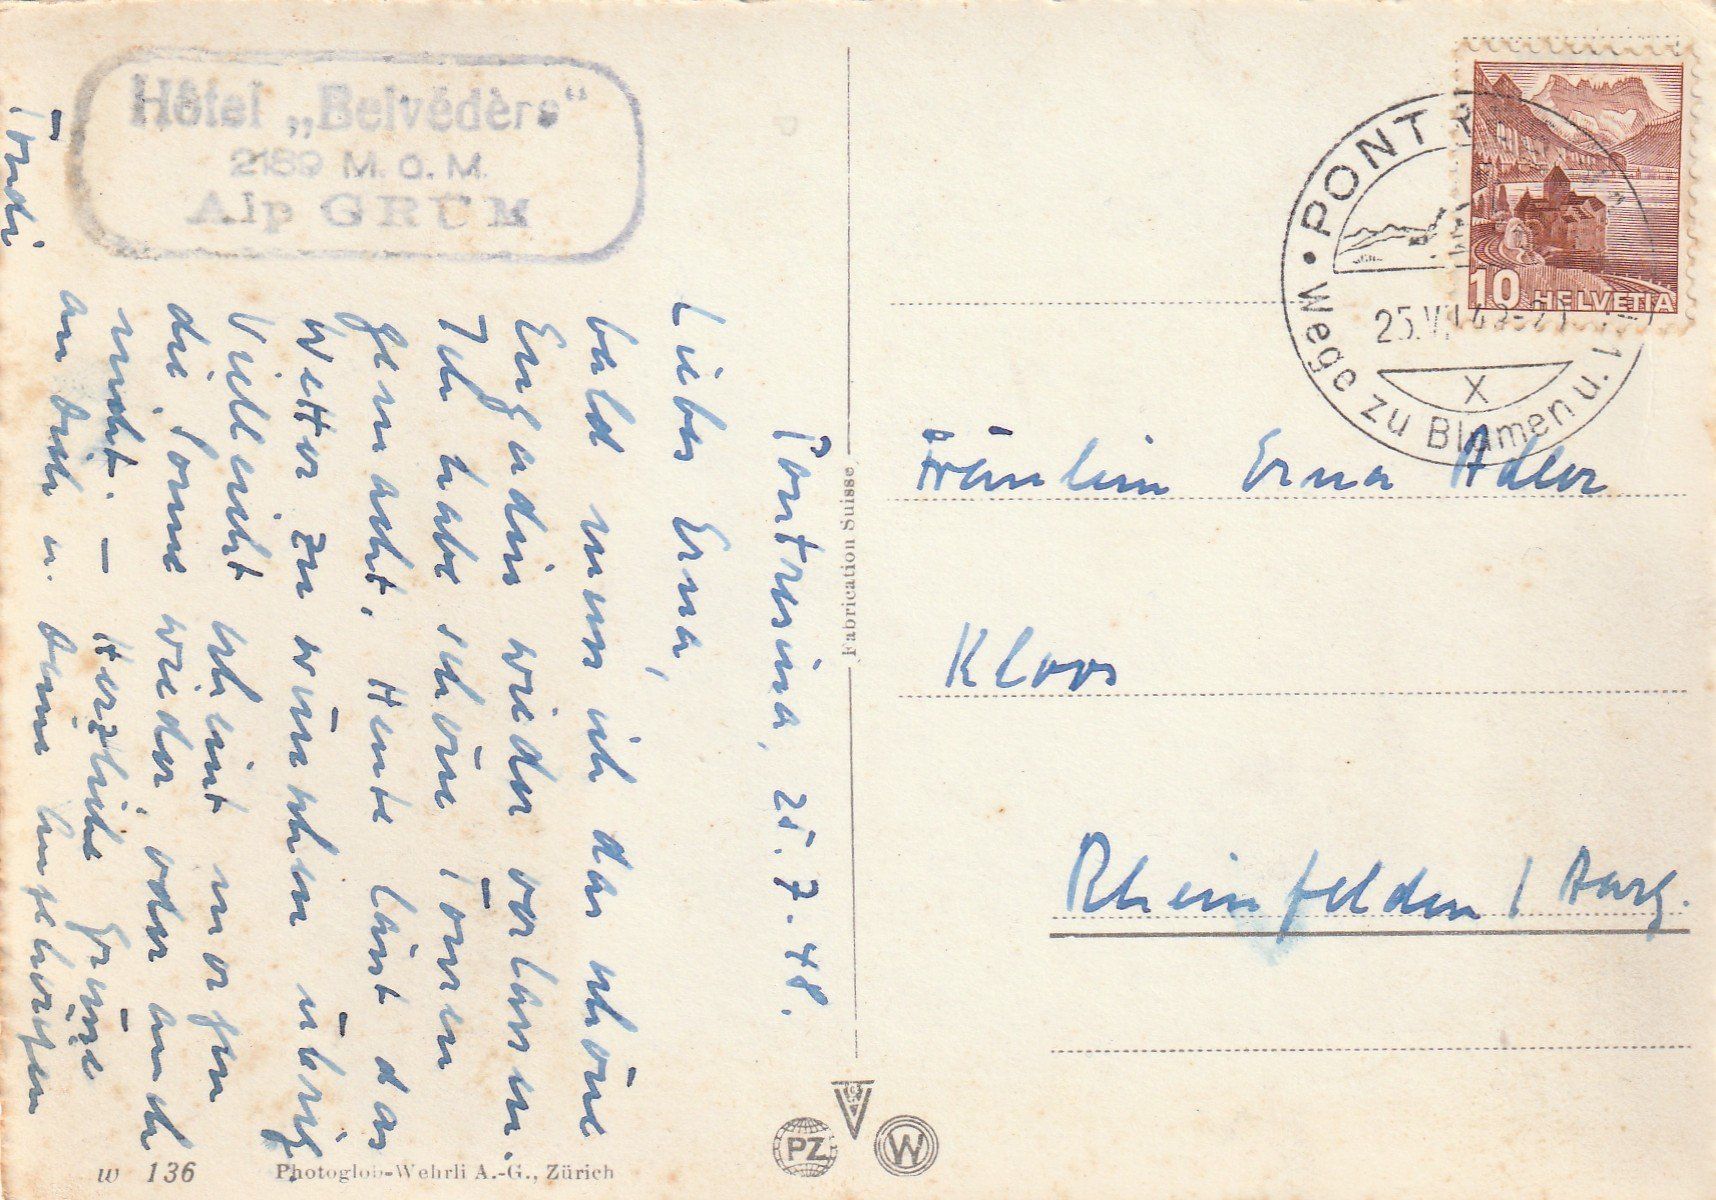 Hôtel „Belvédère“
2189 M. ü. M.
Alp GRÜM
Pontresina, 25.7.48.
Liebe Erna,
bald muss ich das schöne
Engadin wieder verlassen.
Ich habe schöne Touren
gemacht. Heute lässt das
Wetter zu wünschen übrig
Vielleicht scheint morgen
die Sonne wieder, oder auch
nicht. – Herzliche Grüsse
an Dich u. Deine Angehörigen
PONT
25.VII.48-21
X
Wege zu Blumen u.
10 HELVETIA
Fräulein Erna Adler
Kloos
Rheinfelden / Aarg.
Fabrication Suisse
PZ
W
w 136 Photoglob-Wehrli A.-G., Zürich